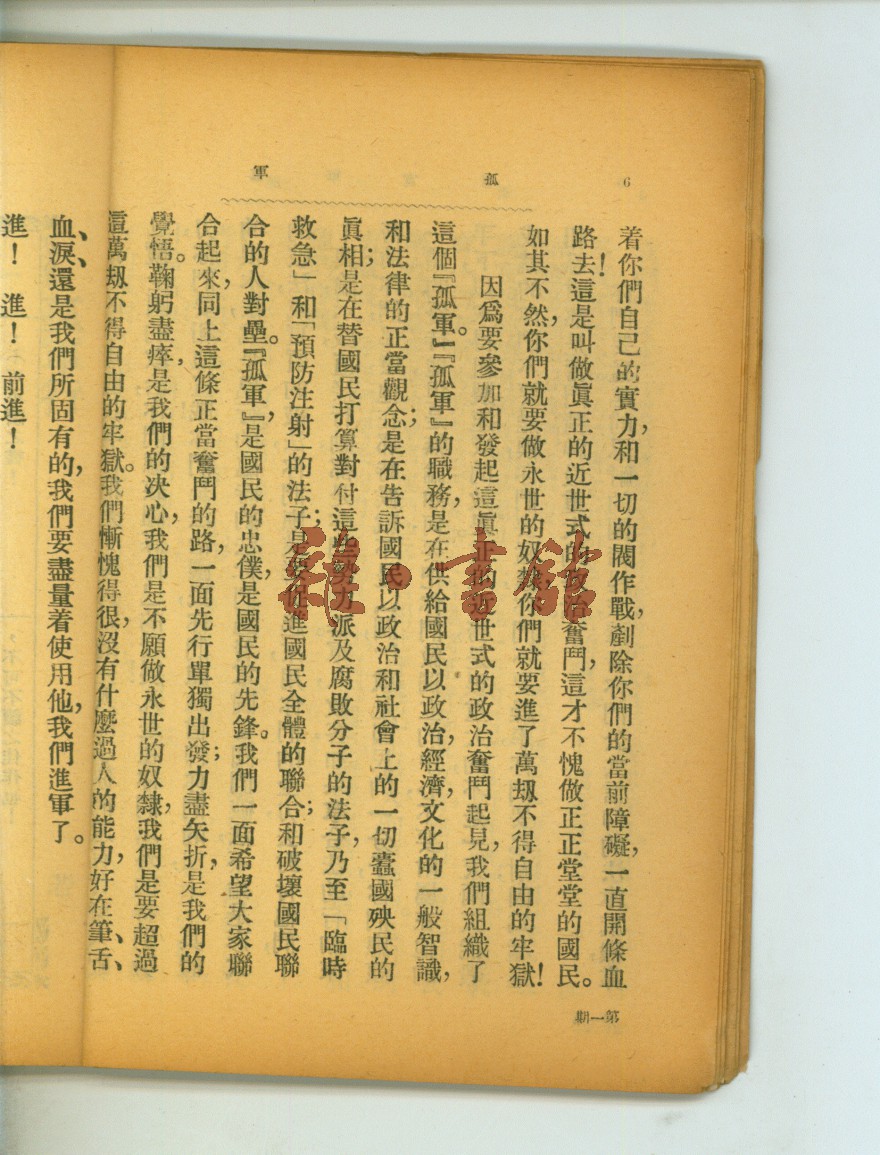 6
孤
軍
着你們自己的實力,和一切的閥作戰,剷除你們的當前障礙,一直開條血
路去!這是叫做眞正的近世式的政治奮鬥,這才不愧做正正堂堂的國民。
如其不然,你們就要做永世的奴隸你們就要進了萬刼不得自由的牢獄!
因爲要參加和發起這眞正的近世式的政治奮鬥起見,我們組織了
這個『孤軍』。『孤軍』的職務,是在供給國民以政治,經濟,文化的一般智識,
和法律的正當觀念;是在告訴國民以政治和社會上的一切蠹國殃民的
眞相;是在替國民打算對付這些勢力派及腐敗分子的法子,乃至「臨時
救急」和「預防注射」的法子;是要促進國民全體的聯合;和破壞國民聯
合的人對壘。『孤軍』,是國民的忠僕,是國民的先鋒。我們一面希望大家聯
合起來,同上這條正當奮鬥的路,一面先行單獨出發;力盡矢折,是我們的
覺悟。鞠躬盡瘁,是我們的决心,我們是不願做永世的奴隸,我們是要超過
這萬刼不得自由的牢獄。我們慚愧得很,沒有什麼過人的能力,好在筆、舌、
血、淚、還是我們所固有的,我們要盡量着使用他,我們進軍了。
進!進!前進!
第一期
雜·書館